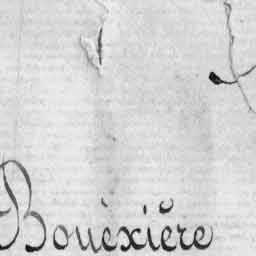 Bouëxière